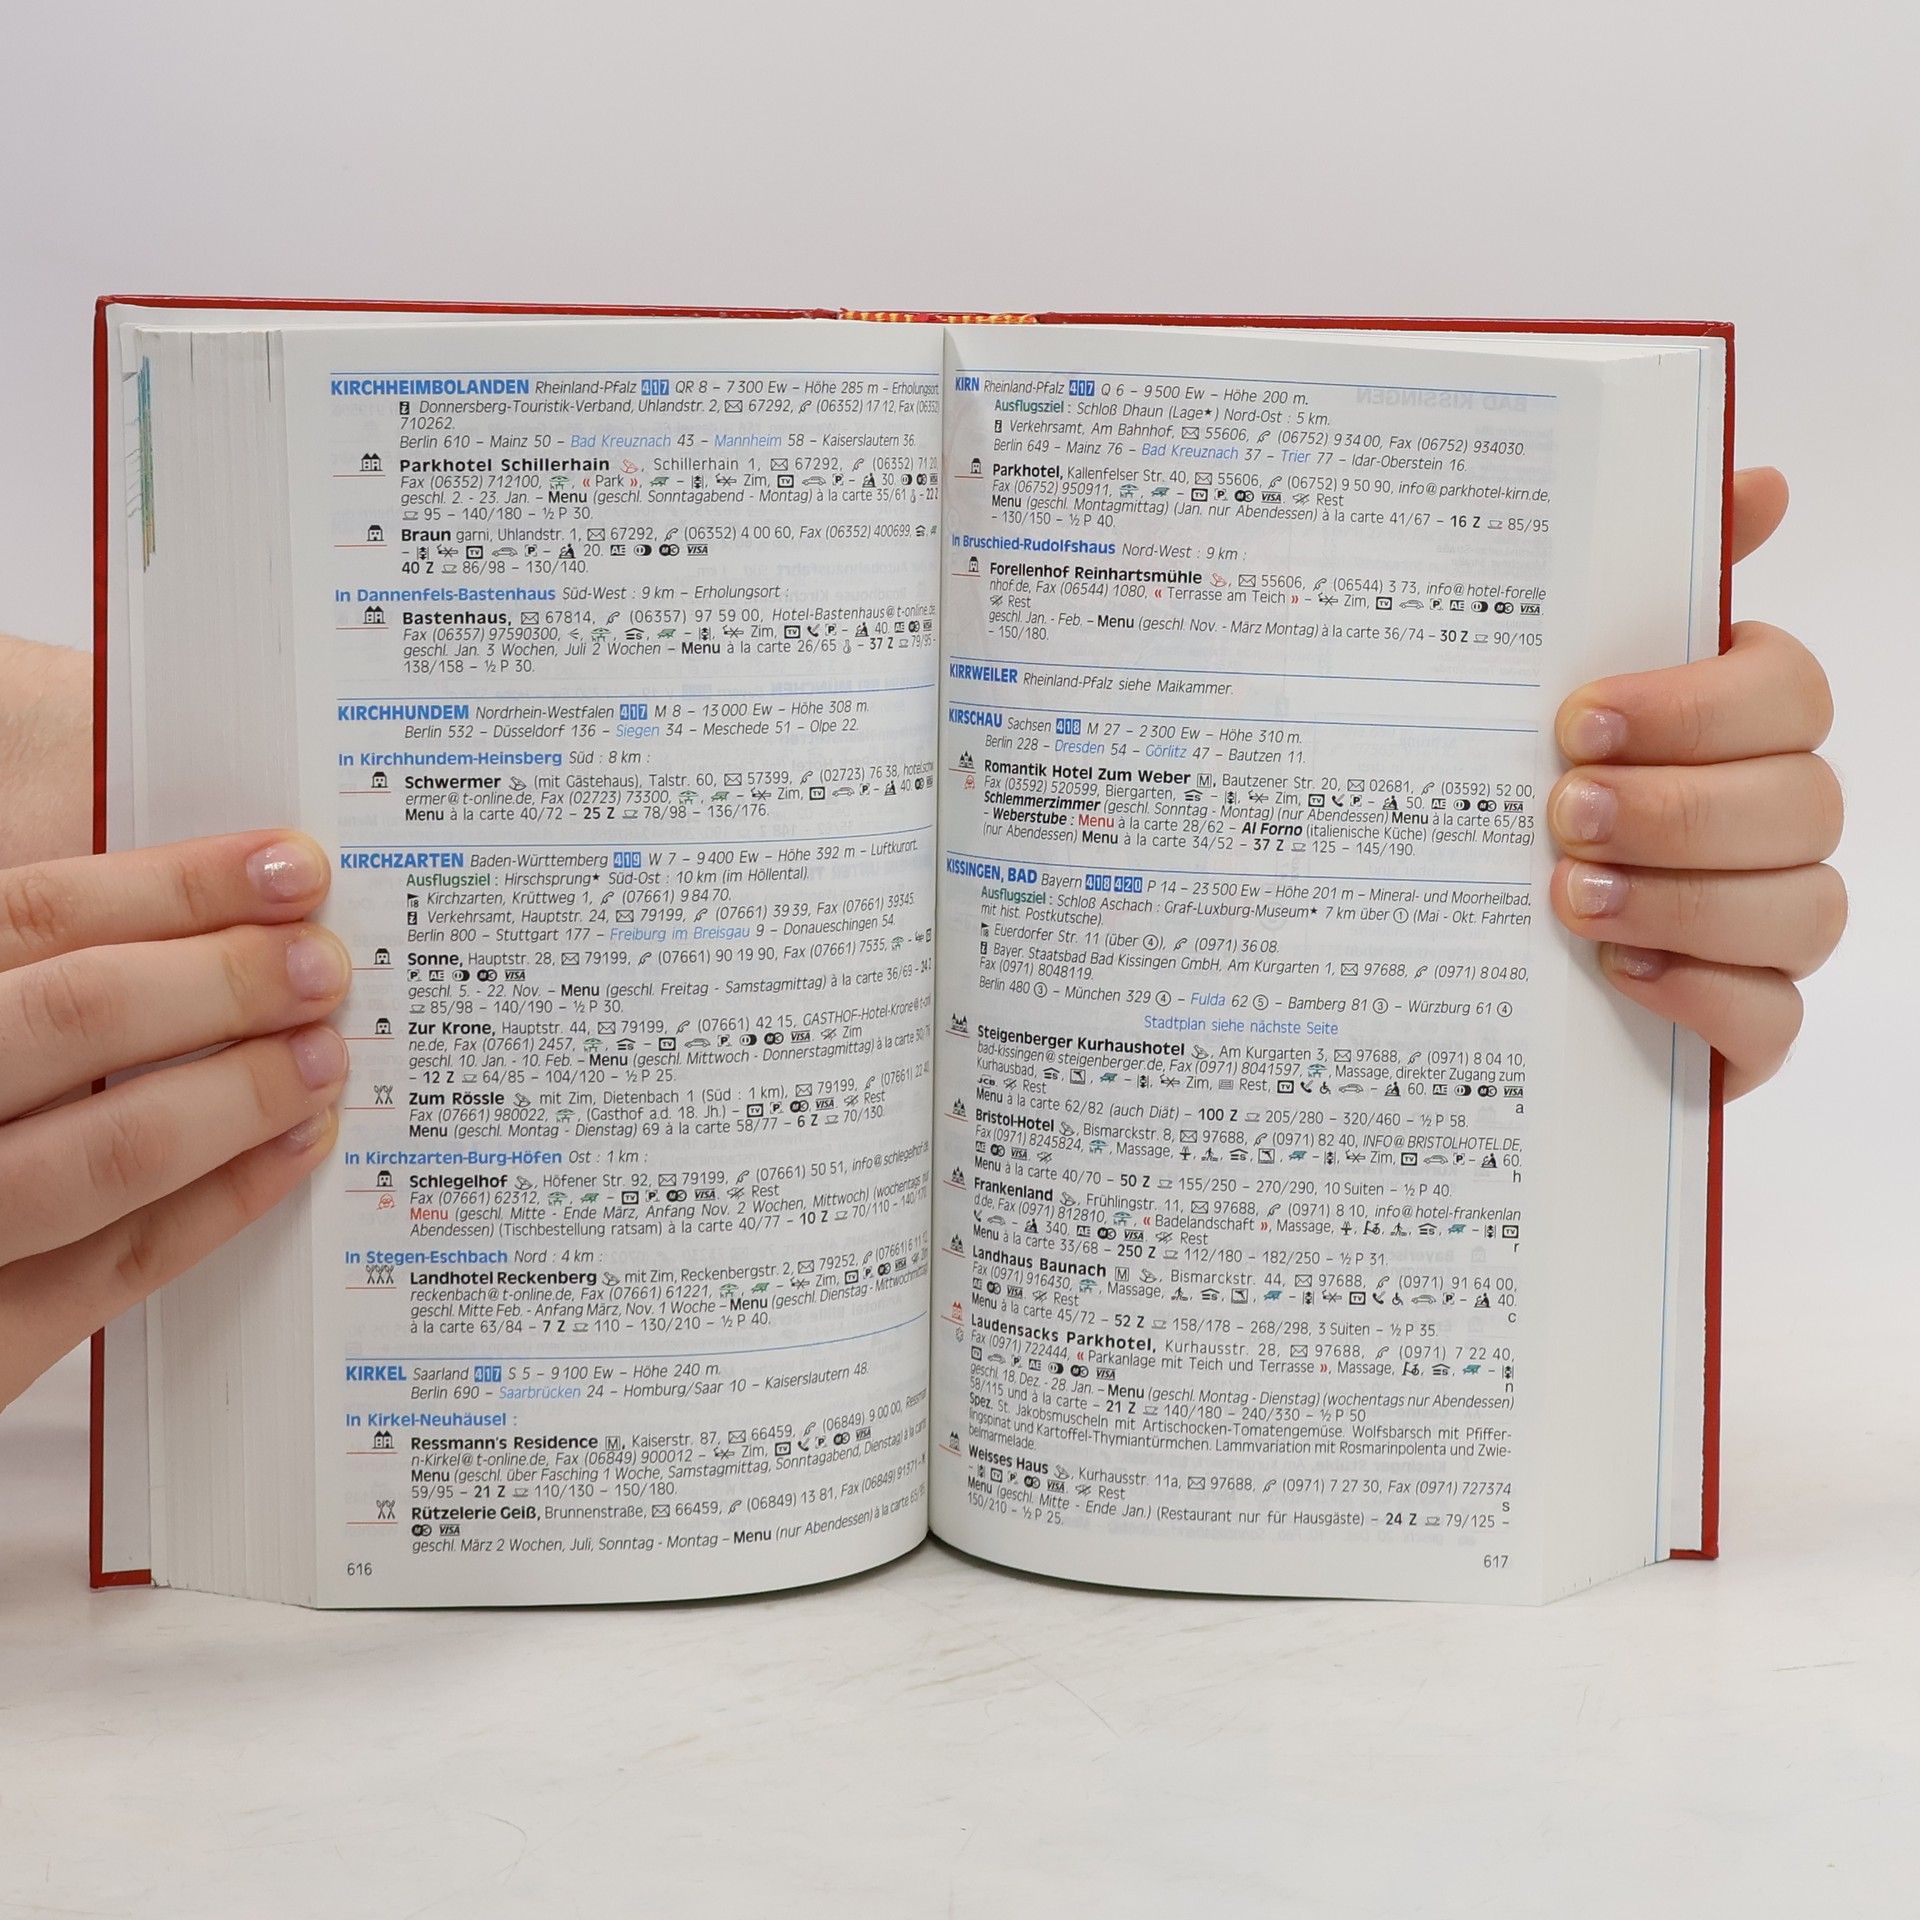 KIRCHHEIMBOLANDEN Rheinland-Pfalz 417 QR 8 – 7 300 Ew – Höhe 285 m – Erholungsort.
Donnersberg-Touristik-Verband, Uhlandstr. 2, ✉ 67292, (06352) 17 12, Fax (06352)
710262.
Berlin 610 – Mainz 50 – Bad Kreuznach 43 – Mannheim 58 – Kaiserslautern 36.
Parkhotel Schillerhain, Schillerhain 1, ✉ 67292, (06352) 71 20,
Fax (06352) 712100, « Park », – Zim, TV P – 30.
geschl. 2. - 23. Jan. – Menu (geschl. Sonntagabend - Montag) à la carte 35/61 – 22 Z
95 – 140/180 – ½ P 30.
Braun garni, Uhlandstr. 1, ✉ 67292, (06352) 4 00 60, Fax (06352) 400699,
– TV P – 20. AE VISA
40 Z 86/98 – 130/140.
In Dannenfels-Bastenhaus Süd-West : 9 km – Erholungsort :
Bastenhaus, ✉ 67814, (06357) 97 59 00, Hotel-Bastenhaus@t-online.de,
Fax (06357) 97590300, – Zim, TV P – 40.
geschl. Jan. 3 Wochen, Juli 2 Wochen – Menu à la carte 26/65 – 37 Z 79/95 -
138/158 – ½ P 30.
KIRCHHUNDEM Nordrhein-Westfalen 417 M 8 – 13 000 Ew – Höhe 308 m.
Berlin 532 – Düsseldorf 136 – Siegen 34 – Meschede 51 – Olpe 22.
In Kirchhundem-Heinsberg Süd : 8 km :
Schwermer (mit Gästehaus), Talstr. 60, ✉ 57399, (02723) 76 38,
ermer@t-online.de, Fax (02723) 73300, – Zim, TV P – 40.
Menu à la carte 40/72 – 25 Z 78/98 – 136/176.
KIRCHZARTEN Baden-Württemberg 419 W 7 – 9 400 Ew – Höhe 392 m – Luftkurort.
Ausflugsziel : Hirschsprung★ Süd-Ost : 10 km (im Höllental).
18 Kirchzarten, Krüttweg 1, (07661) 9 84 70.
Verkehrsamt, Hauptstr. 24, ✉ 79199, (07661) 39 39, Fax (07661) 39345.
Berlin 800 – Stuttgart 177 – Freiburg im Breisgau 9 – Donaueschingen 54.
Sonne, Hauptstr. 28, ✉ 79199, (07661) 90 19 90, Fax (07661) 7535,
P AE VISA
geschl. 5. - 22. Nov. – Menu (geschl. Freitag - Samstagmittag) à la carte 36/69 – 24 Z
85/98 – 140/190 – ½ P 30.
Zur Krone, Hauptstr. 44, ✉ 79199, (07661) 42 15, GASTHOF-Hotel-Krone@t-onli
ne.de, Fax (07661) 2457, – TV P VISA Zim
geschl. 10. Jan. - 10. Feb. – Menu (geschl. Mittwoch - Donnerstagmittag) à la carte 30/76
– 12 Z 64/85 – 104/120 – ½ P 25.
Zum Rössle mit Zim, Dietenbach 1 (Süd : 1 km), ✉ 79199, (07661) 22 40,
Fax (07661) 980022, (Gasthof a.d. 18. Jh.) – TV P VISA Rest
Menu (geschl. Montag - Dienstag) 69 à la carte 58/77 – 6 Z 70/130.
In Kirchzarten-Burg-Höfen Ost : 1 km :
Schlegelhof, Höfener Str. 92, ✉ 79199, (07661) 50 51, info@schlegelhof.de,
Fax (07661) 62312, – TV P VISA Rest
Menu (geschl. Mitte - Ende März, Anfang Nov. 2 Wochen, Mittwoch) (wochentags nur
Abendessen) (Tischbestellung ratsam) à la carte 40/77 – 10 Z 70/110 – 140/170.
In Stegen-Eschbach Nord : 4 km :
Landhotel Reckenberg mit Zim, Reckenbergstr. 2, ✉ 79252, (07661) 6 11 12,
reckenbach@t-online.de, Fax (07661) 61221, – Zim, TV P VISA
geschl. Mitte Feb. - Anfang März, Nov. 1 Woche – Menu (geschl. Dienstag - Mittwochmittag)
à la carte 63/84 – 7 Z 110 – 130/210 – ½ P 40.
KIRKEL Saarland 417 S 5 – 9 100 Ew – Höhe 240 m.
Berlin 690 – Saarbrücken 24 – Homburg/Saar 10 – Kaiserslautern 48.
In Kirkel-Neuhäusel :
Ressmann's Residence M, Kaiserstr. 87, ✉ 66459, (06849) 9 00 00, Ressman
n-Kirkel@t-online.de, Fax (06849) 900012 – Zim, TV P VISA
Menu (geschl. über Fasching 1 Woche, Samstagmittag, Sonntagabend, Dienstag) à la carte
59/95 – 21 Z 110/130 – 150/180.
Rützelerie Geiß, Brunnenstraße, ✉ 66459, (06849) 13 81, Fax (06849) 91371 –
VISA
geschl. März 2 Wochen, Juli, Sonntag - Montag – Menu (nur Abendessen) à la carte 65/
616
KIRN Rheinland-Pfalz 417 Q 6 – 9 500 Ew – Höhe 200 m.
Ausflugsziel : Schloß Dhaun (Lage★) Nord-Ost : 5 km.
Verkehrsamt, Am Bahnhof, ✉ 55606, (06752) 9 34 00, Fax (06752) 934030.
Berlin 649 – Mainz 76 – Bad Kreuznach 37 – Trier 77 – Idar-Oberstein 16.
Parkhotel, Kallenfelser Str. 40, ✉ 55606, (06752) 9 50 90, info@parkhotel-kirn.de,
Fax (06752) 950911, – TV P VISA Rest
Menu (geschl. Montagmittag) (Jan. nur Abendessen) à la carte 41/67 – 16 Z 85/95
– 130/150 – ½ P 40.
In Bruschied-Rudolfshaus Nord-West : 9 km :
Forellenhof Reinhartsmühle, ✉ 55606, (06544) 3 73, info@hotel-forelle
nhof.de, Fax (06544) 1080, « Terrasse am Teich » – Zim, TV P AE VISA
Rest
geschl. Jan. - Feb. – Menu (geschl. Nov. - März Montag) à la carte 36/74 – 30 Z 90/105
– 150/180.
KIRRWEILER Rheinland-Pfalz siehe Maikammer.
KIRSCHAU Sachsen 418 M 27 – 2 300 Ew – Höhe 310 m.
Berlin 228 – Dresden 54 – Görlitz 47 – Bautzen 11.
Romantik Hotel Zum Weber M, Bautzener Str. 20, ✉ 02681, (03592) 52 00,
Fax (03592) 520599, Biergarten, – Zim, TV P – 50. AE VISA
Schlemmerzimmer (geschl. Sonntag - Montag) (nur Abendessen) Menu à la carte 65/83
– Weberstube : Menu à la carte 28/62 – Al Forno (italienische Küche) (geschl. Montag)
(nur Abendessen) Menu à la carte 34/52 – 37 Z 125 – 145/190.
KISSINGEN, BAD Bayern 418 420 P 14 – 23 500 Ew – Höhe 201 m – Mineral- und Moorheilbad.
Ausflugsziel : Schloß Aschach : Graf-Luxburg-Museum★ 7 km über ① (Mai - Okt. Fahrten
mit hist. Postkutsche).
18 Euerdorfer Str. 11 (über ④), (0971) 36 08.
Bayer. Staatsbad Bad Kissingen GmbH, Am Kurgarten 1, ✉ 97688, (0971) 8 04 80,
Fax (0971) 8048119.
Berlin 480 ③ – München 329 ④ – Fulda 62 ⑤ – Bamberg 81 ③ – Würzburg 61 ④
Stadtplan siehe nächste Seite
Steigenberger Kurhaushotel, Am Kurgarten 3, ✉ 97688, (0971) 8 04 10,
bad-kissingen@steigenberger.de, Fax (0971) 8041597, Massage, direkter Zugang zum
Kurhausbad, – Zim, Rest, TV – 60. AE VISA
JCB Rest a
Menu à la carte 62/82 (auch Diät) – 100 Z 205/280 – 320/460 – ½ P 58.
Bristol-Hotel, Bismarckstr. 8, ✉ 97688, (0971) 82 40, INFO@BRISTOLHOTEL.DE,
Fax (0971) 8245824, Massage, – Zim, TV P – 60.
AE VISA h
Menu à la carte 40/70 – 50 Z 155/250 – 270/290, 10 Suiten – ½ P 40.
Frankenland, Frühlingstr. 11, ✉ 97688, (0971) 8 10, info@hotel-frankenlan
d.de, Fax (0971) 812810, « Badelandschaft », Massage, – TV
– 340. AE VISA Rest r
Menu à la carte 33/68 – 250 Z 112/180 – 182/250 – ½ P 31.
Landhaus Baunach M, Bismarckstr. 44, ✉ 97688, (0971) 91 64 00,
Fax (0971) 916430, Massage, – TV P – 40.
AE VISA Rest c
Menu à la carte 45/72 – 52 Z 158/178 – 268/298, 3 Suiten – ½ P 35.
Laudensacks Parkhotel, Kurhausstr. 28, ✉ 97688, (0971) 7 22 40,
Fax (0971) 722444, « Parkanlage mit Teich und Terrasse », Massage, –
TV P AE VISA n
geschl. 18. Dez. - 28. Jan. – Menu (geschl. Montag - Dienstag) (wochentags nur Abendessen)
58/115 und à la carte – 21 Z 140/180 – 240/330 – ½ P 50
Spez. St. Jakobsmuscheln mit Artischocken-Tomatengemüse. Wolfsbarsch mit Pfiffer-
lingspinat und Kartoffel-Thymiantürmchen. Lammvariation mit Rosmarinpolenta und Zwie-
belmarmelade.
Weisses Haus, Kurhausstr. 11a, ✉ 97688, (0971) 7 27 30, Fax (0971) 727374
– TV P VISA Rest s
Menu (geschl. Mitte - Ende Jan.) (Restaurant nur für Hausgäste) – 24 Z 79/125 –
150/210 – ½ P 25.
617